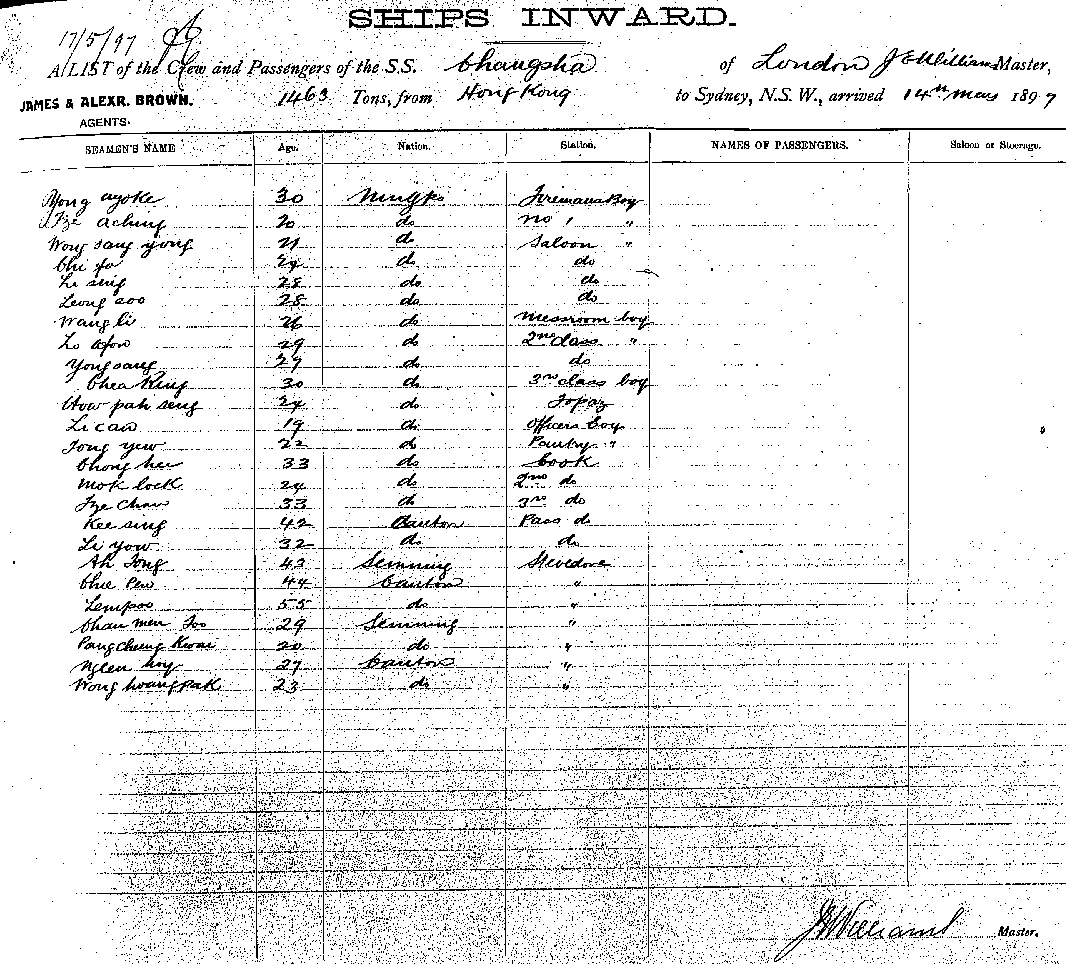 SHIPS INWARD.
17/5/97
A LIST of the Crew and Passengers of the S.S. Changsha of London J E Williams Master,
JAMES & ALEXR. BROWN, 1463 Tons, from Hong Kong to Sydney, N.S.W., arrived 14th May 1897
AGENTS.
SEAMEN'S NAME Age. Nation. Station. NAMES OF PASSENGERS. Saloon or Steerage.
Yong ayoke 30 Ningpo Firemans Boy
Tze aching 20 do no 1 "
Wong sang yong 21 do Saloon "
Chi fa 24 do do
Li sing 28 do do
Leong soo 28 do do
Wang li 26 do Messroom boy
Lo 29 do 2nd class "
Yong sang 27 do do
Chea King 30 do 3rd class boy
How pah seng 24 do Topaz
Li can 19 do officers boy
Tong yew 22 do Pantry "
Chong hee 33 do Cook
Mok lock 24 do 2nd do
Tze Chow 33 do 3rd do
Kee sing 42 Canton Pass do
Li yow 32 do do
Ah Tong 43 Stevedore
Chue Pew 44 Canton "
55 do "
Chan men Too 29 "
Pang Cheung Kwai 20 do "
hoy 27 Canton "
Wong hoang pak 23 do "
Williams Master.